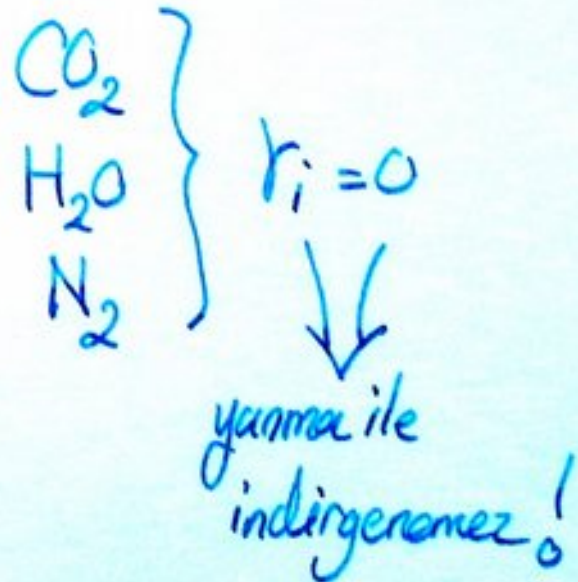 CO₂
H₂O
N₂
γᵢ = 0
yanma ile
indirgenemez!